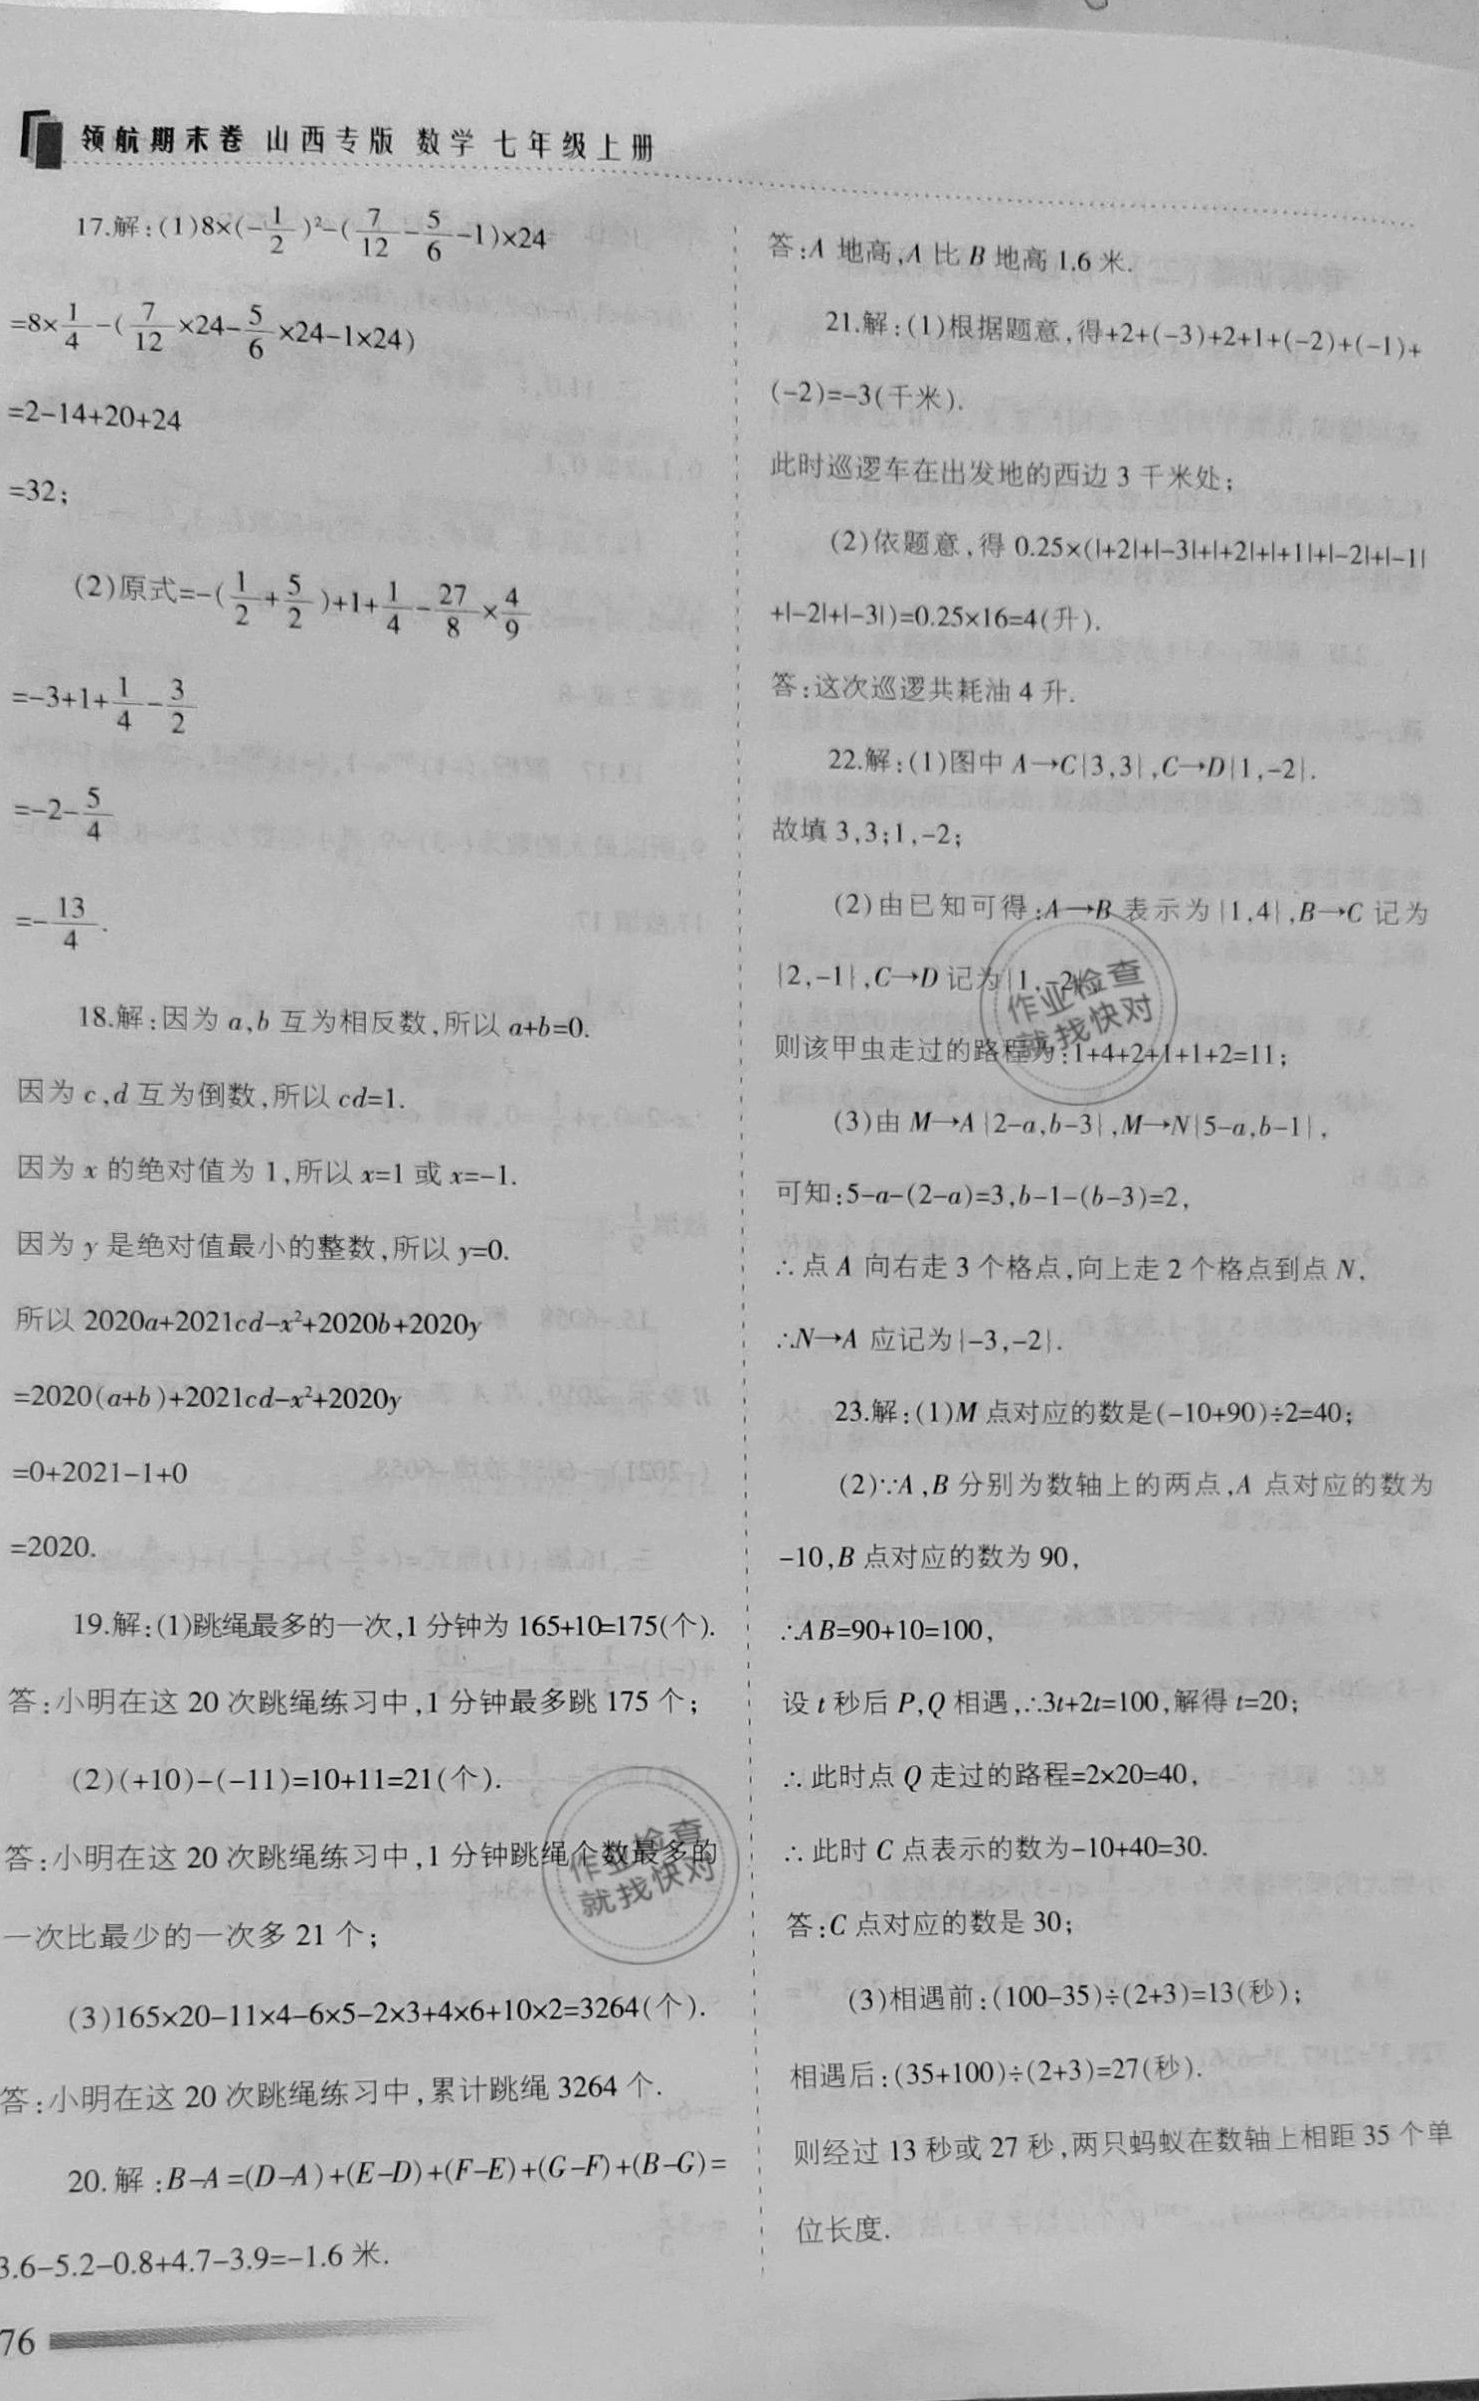 领航期末卷 山西专版 数学 七年级上册
17.解:(1)8×(-1/2)²-(7/12-5/6-1)×24
=8×1/4-(7/12×24-5/6×24-1×24)
=2-14+20+24
=32;
(2)原式=-(1/2+5/2)+1+1/4-27/8×4/9
=-3+1+1/4-3/2
=-2-5/4
=-13/4.
18.解:因为 a,b 互为相反数,所以 a+b=0.
因为 c,d 互为倒数,所以 cd=1.
因为 x 的绝对值为 1,所以 x=1 或 x=-1.
因为 y 是绝对值最小的整数,所以 y=0.
所以 2020a+2021cd-x²+2020b+2020y
=2020(a+b)+2021cd-x²+2020y
=0+2021-1+0
=2020.
19.解:(1)跳绳最多的一次,1 分钟为 165+10=175(个).
答:小明在这 20 次跳绳练习中,1 分钟最多跳 175 个;
(2)(+10)-(-11)=10+11=21(个).
答:小明在这 20 次跳绳练习中,1 分钟跳绳个数最多的
一次比最少的一次多 21 个;
(3)165×20-11×4-6×5-2×3+4×6+10×2=3264(个).
答:小明在这 20 次跳绳练习中,累计跳绳 3264 个.
20.解:B-A=(D-A)+(E-D)+(F-E)+(G-F)+(B-G)=
3.6-5.2-0.8+4.7-3.9=-1.6 米.
76
答:A 地高,A 比 B 地高 1.6 米.
21.解:(1)根据题意,得+2+(-3)+2+1+(-2)+(-1)+
(-2)=-3(千米).
此时巡逻车在出发地的西边 3 千米处;
(2)依题意,得 0.25×(|+2|+|-3|+|+2|+|+1|+|-2|+|-1|
+|-2|+|-3|)=0.25×16=4(升).
答:这次巡逻共耗油 4 升.
22.解:(1)图中 A→C{3,3},C→D{1,-2}.
故填 3,3;1,-2;
(2)由已知可得:A→B 表示为{1,4},B→C 记为
{2,-1},C→D 记为{1,-2},
则该甲虫走过的路程为:1+4+2+1+1+2=11;
(3)由 M→A{2-a,b-3},M→N{5-a,b-1},
可知:5-a-(2-a)=3,b-1-(b-3)=2,
∴点 A 向右走 3 个格点,向上走 2 个格点到点 N,
∴N→A 应记为{-3,-2}.
23.解:(1)M 点对应的数是(-10+90)÷2=40;
(2)∵A,B 分别为数轴上的两点,A 点对应的数为
-10,B 点对应的数为 90,
∴AB=90+10=100,
设 t 秒后 P,Q 相遇,∴3t+2t=100,解得 t=20;
∴此时点 Q 走过的路程=2×20=40,
∴此时 C 点表示的数为-10+40=30.
答:C 点对应的数是 30;
(3)相遇前:(100-35)÷(2+3)=13(秒);
相遇后:(35+100)÷(2+3)=27(秒).
则经过 13 秒或 27 秒,两只蚂蚁在数轴上相距 35 个单
位长度.
作业检查
就找快对
作业检查
就找快对